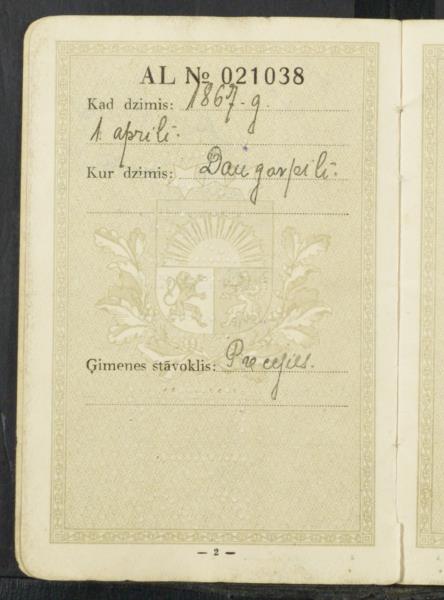 AL № 021038
Kad dzimis: 1867. g.
1. aprīlī.
Kur dzimis: Daugavpilī.
Ģimenes stāvoklis: Precējies.
— 2 —